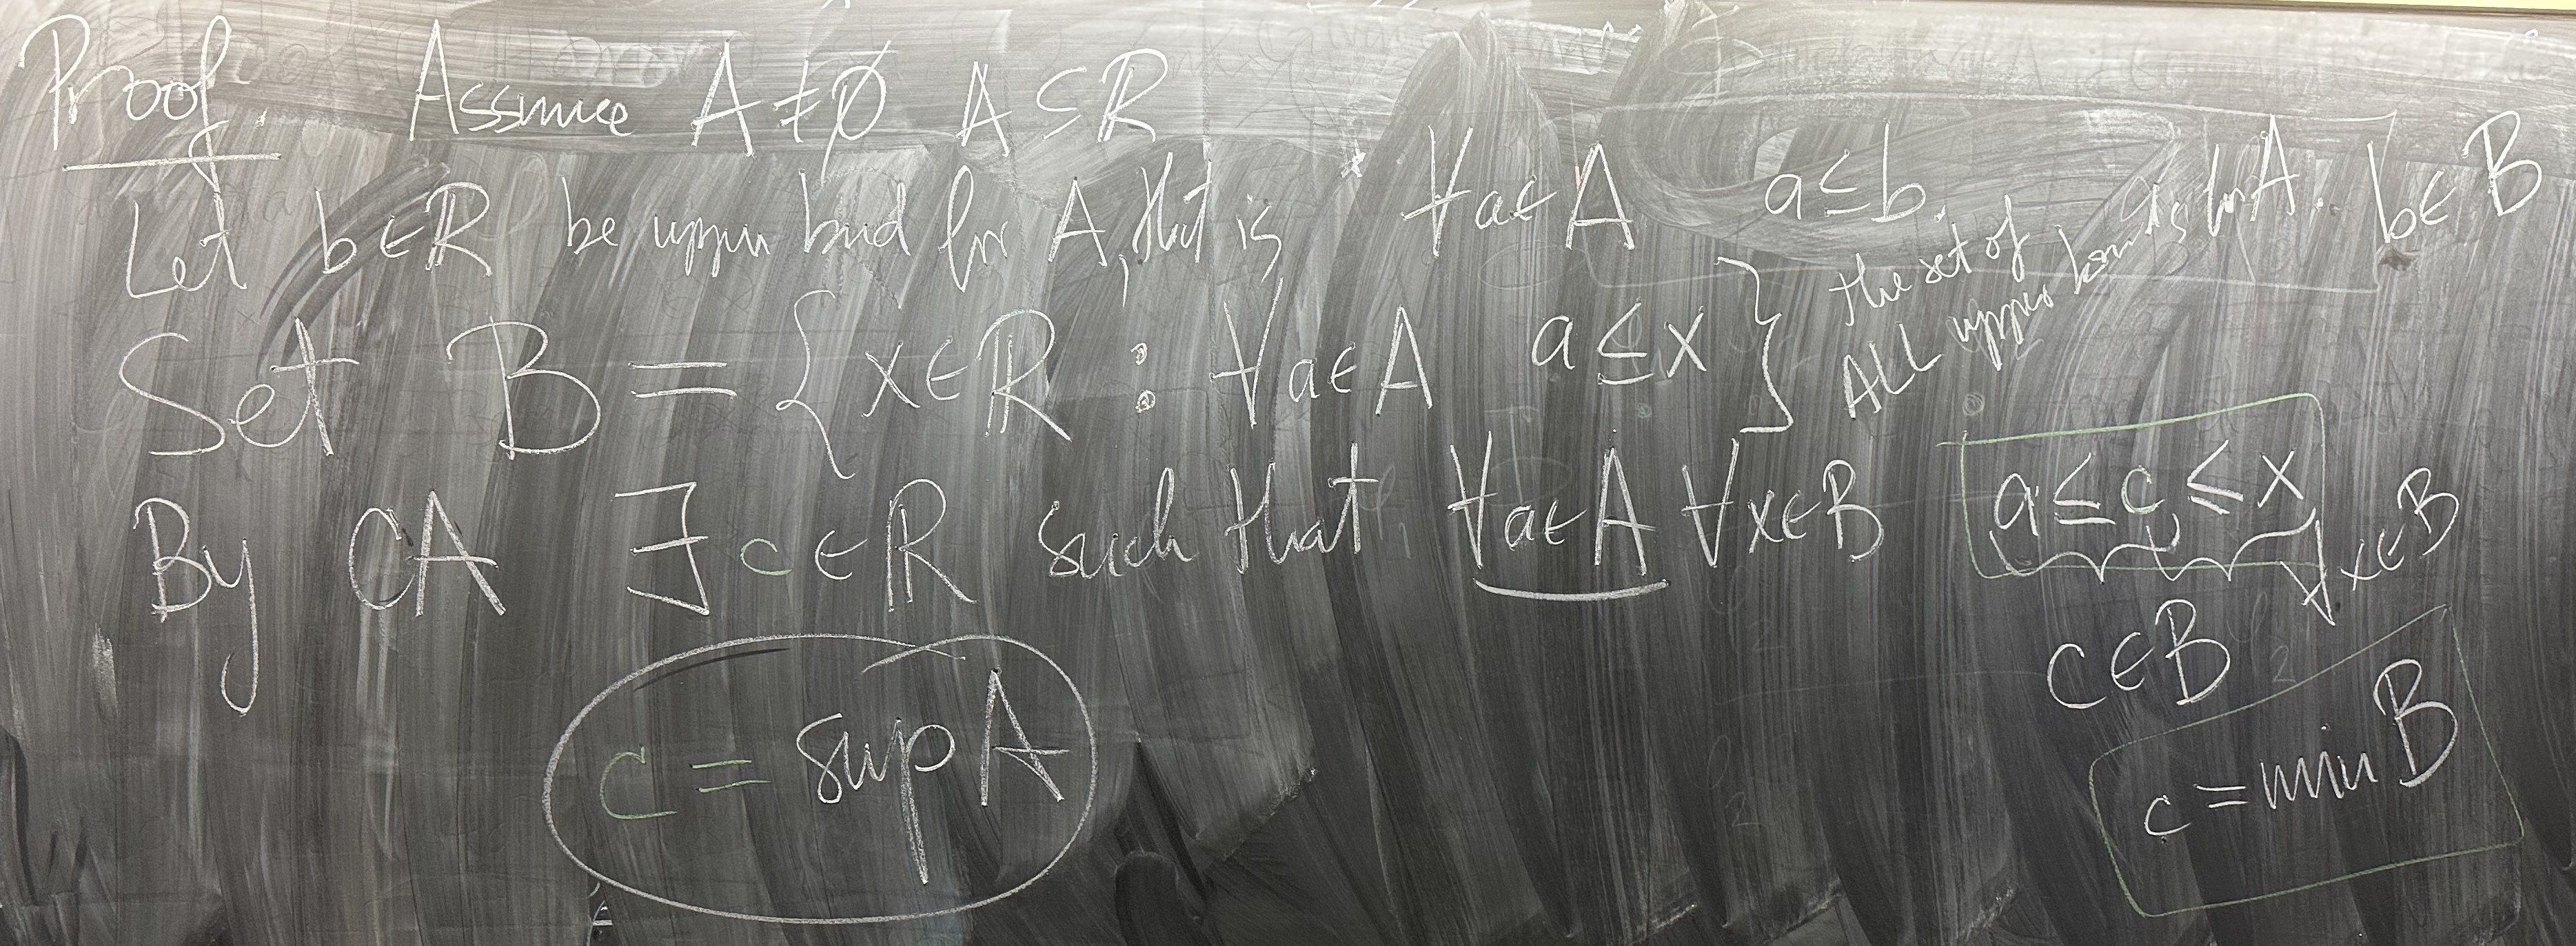 Proof. Assume A ≠ ∅ A ⊆ ℝ
Let b ∈ ℝ be upper bnd for A, that is ∀ a ∈ A a ≤ b. b ∈ B
Set B = { x ∈ ℝ : ∀ a ∈ A a ≤ x } the set of
ALL upper bounds for A.
By CA ∃ c ∈ ℝ such that ∀ a ∈ A ∀ x ∈ B a ≤ c ≤ x
∀ x ∈ B
c ∈ B
c = sup A c = min B